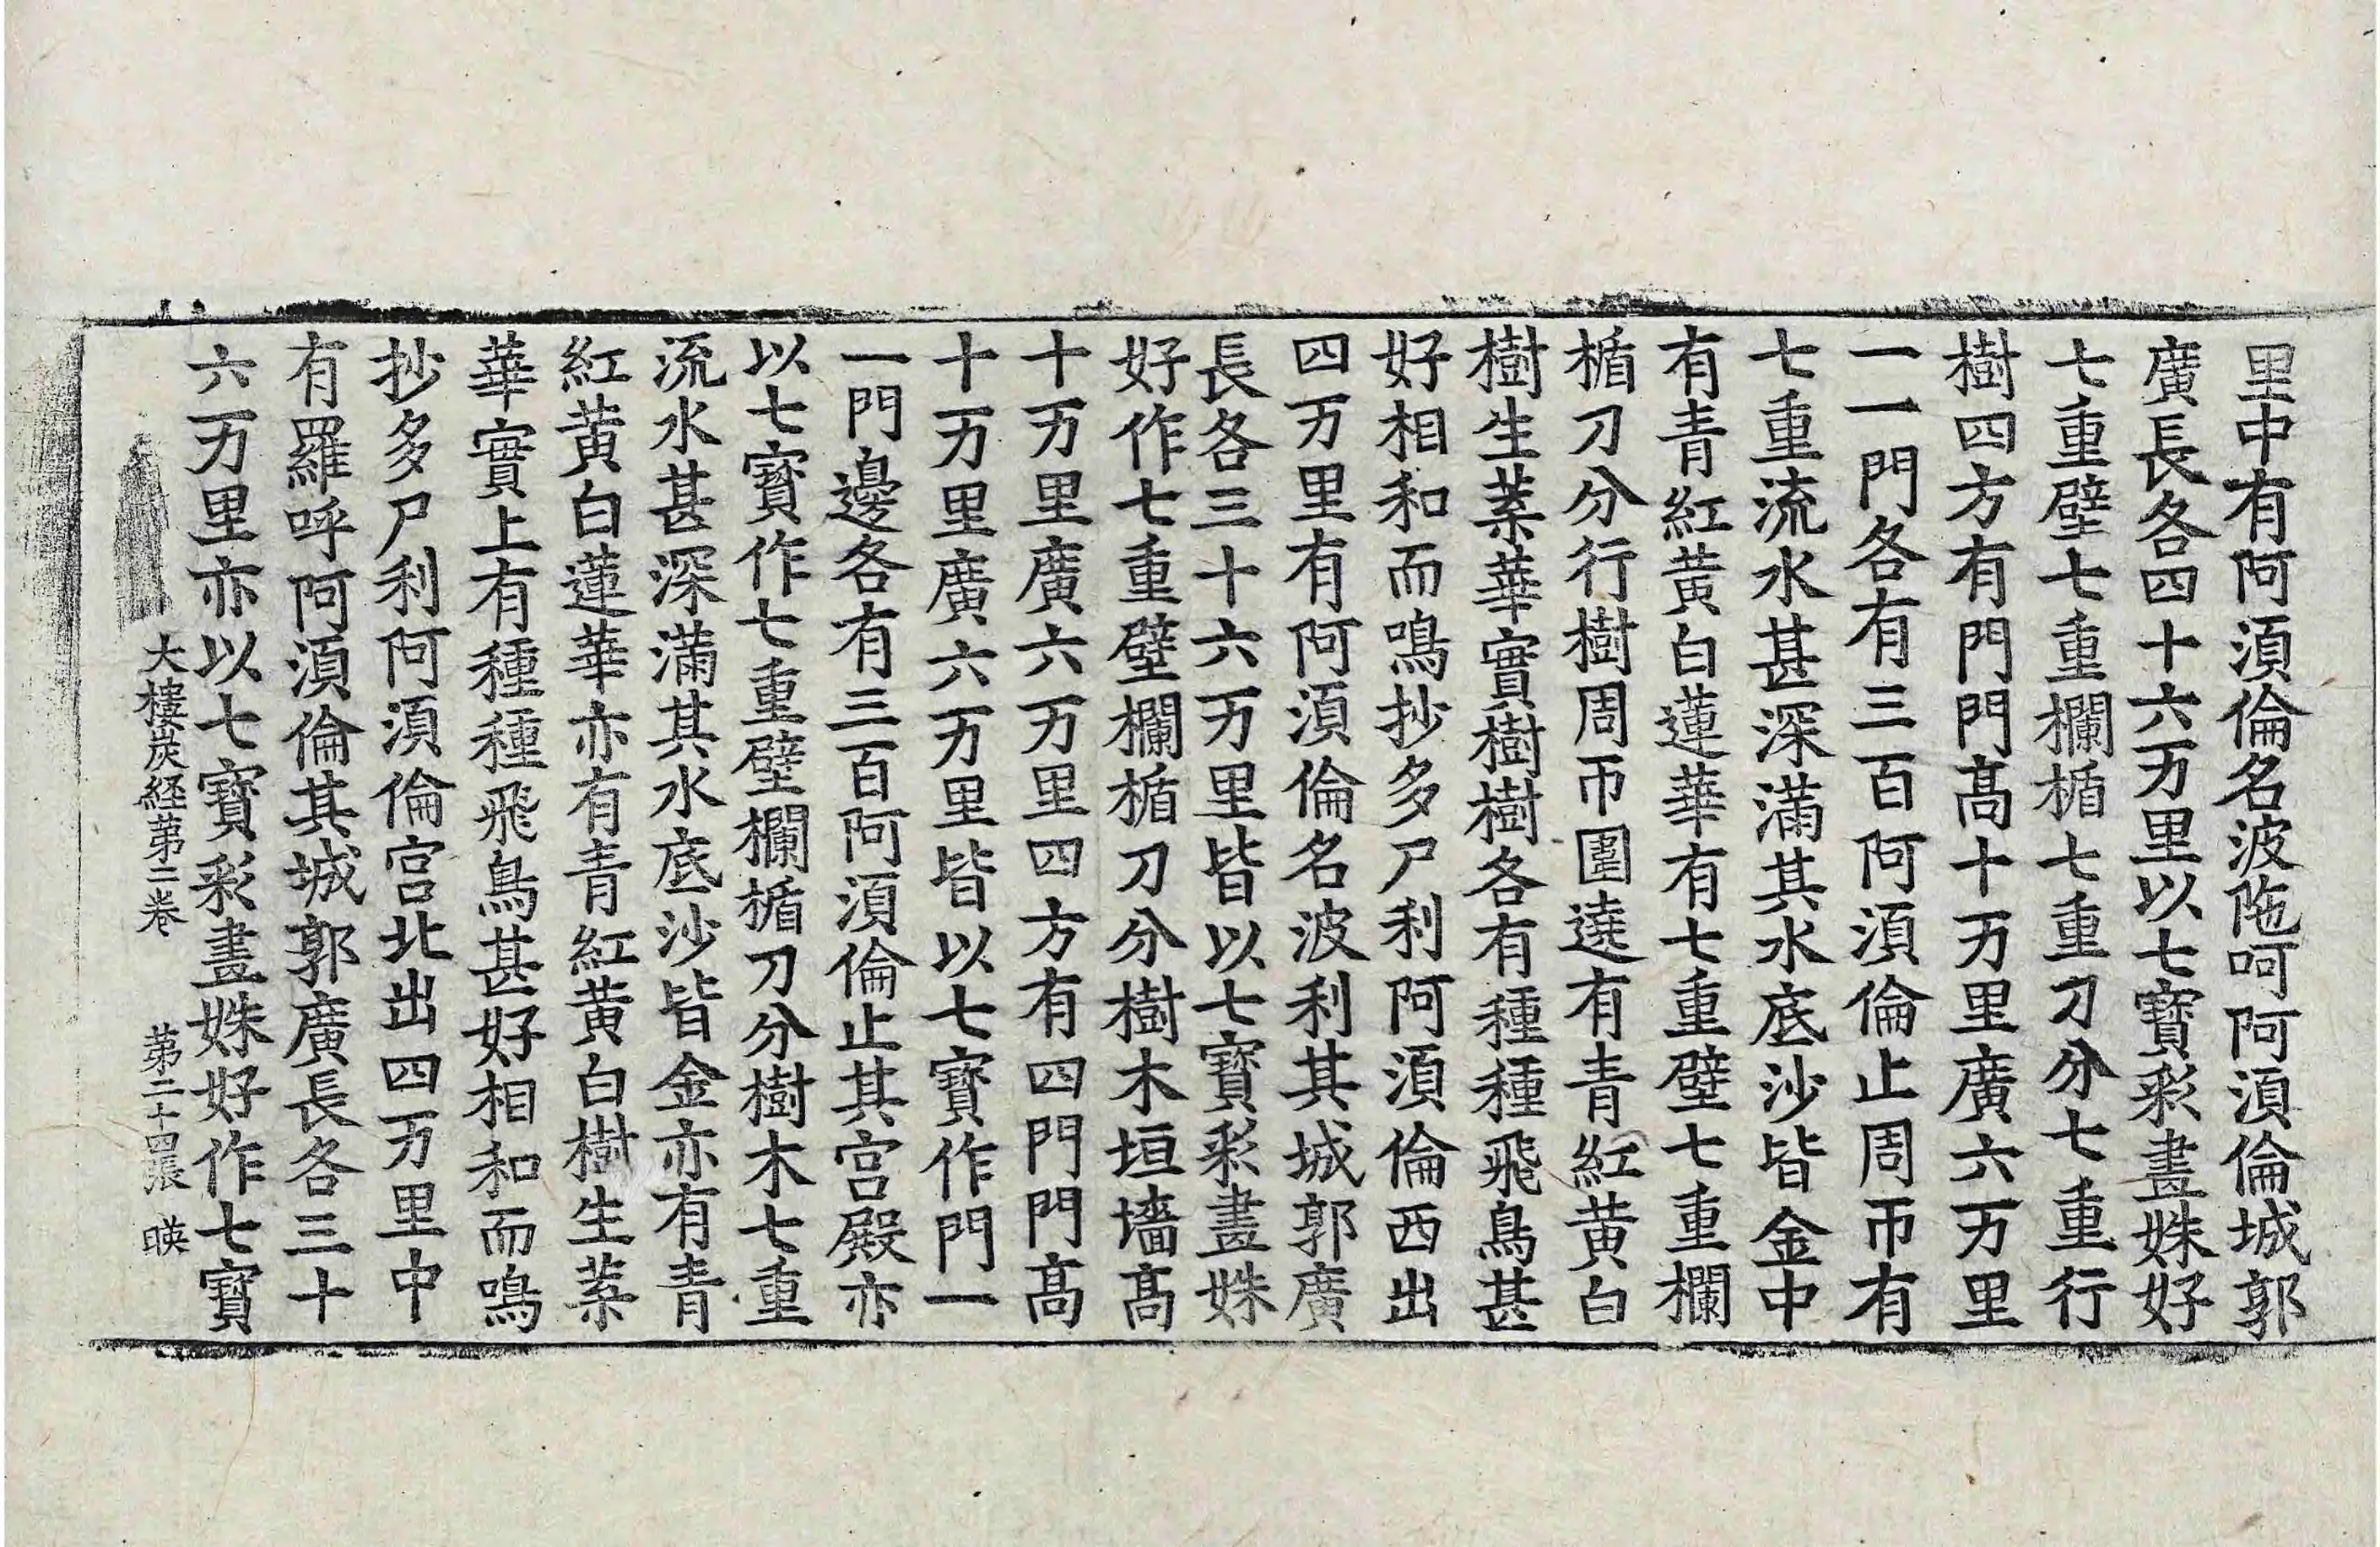 里中有阿湏倫名波陁呵阿湏倫城郭
廣長各四十六万里以七寳彩畫姝好
七重壁七重欄楯七重刀分七重行
樹四方有門門髙十万里廣六万里
一一門各有三百阿湏倫止周帀有
七重流水甚深滿其水底沙皆金中
有青紅黃白蓮華有七重壁七重欄
楯刀分行樹周帀圍遶有青紅黃白
樹生葉華實樹樹各有種種飛鳥甚
好相和而鳴抄多尸利阿湏倫西出
四万里有阿湏倫名波利其城郭廣
長各三十六万里皆以七寳彩畫姝
好作七重壁欄楯刀分樹木垣墻髙
十万里廣六万里四方有四門門髙
十万里廣六万里皆以七寳作門一
一門邊各有三百阿湏倫止其宫殿亦
以七寳作七重壁欄楯刀分樹木七重
流水甚深滿其水底沙皆金亦有青
紅黃白蓮華亦有青紅黃白樹生葉
華實上有種種飛鳥甚好相和而鳴
抄多尸利阿湏倫宫北出四万里中
有羅呼阿湏倫其城郭廣長各三十
六万里亦以七寳彩畫姝好作七寳
大樓炭経苐二卷 苐二十四張 暎